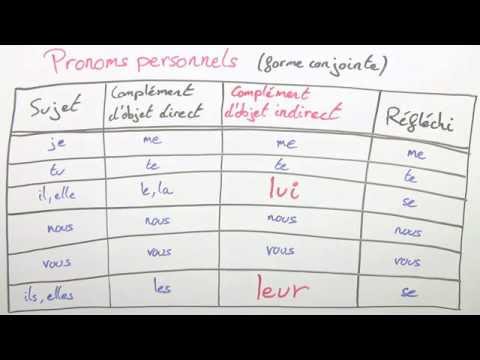 Pronoms personnels (forme conjointe)
Sujet Complément d'objet direct Complément d'objet indirect Réfléchi
je me me me
tu te te te
il, elle le, la lui se
nous nous nous nous
vous vous vous vous
ils, elles les leur se